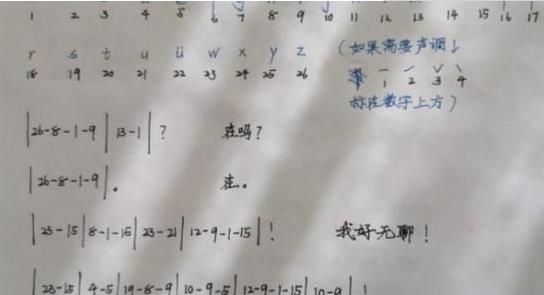 1 2 3 4 5 6 7 8 9 10 11 12 13 14 15 16 17
r s t u ü w x y z
18 19 20 21 22 23 24 25 26
(如果需要声调↓
1 2 3 4
标注数字上方)
|26-8-1-9|13-1|? 在吗?
|26-8-1-9|。 在。
|23-15|8-1-15|23-21|12-9-1-15|! 我好无聊!
|23-15|4-5|19-8-9|10-9-5|12-9-1-15|10-9|!